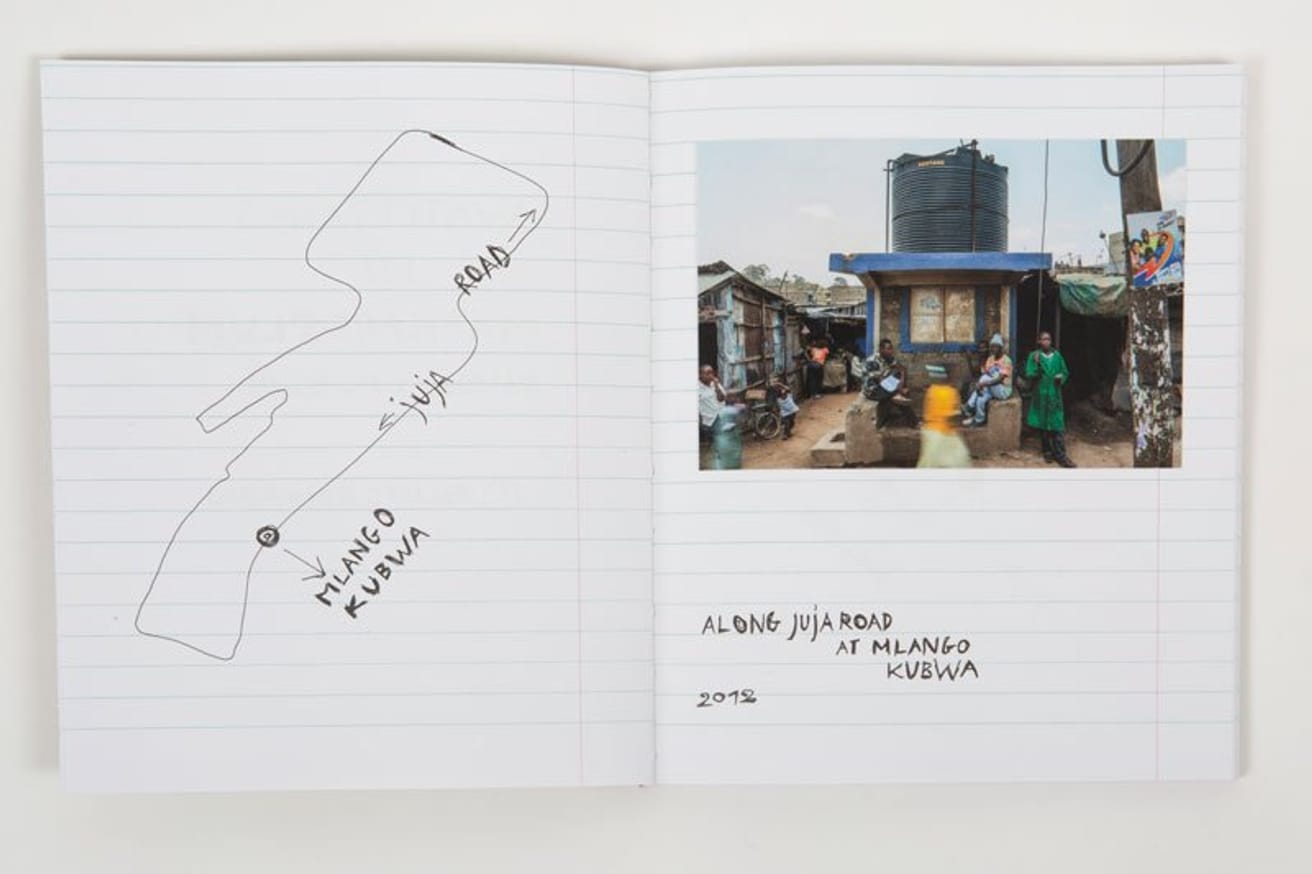 ROAD
JUJA
MLANGO
KUBWA
ALONG JUJA ROAD
AT MLANGO
KUBWA
2012